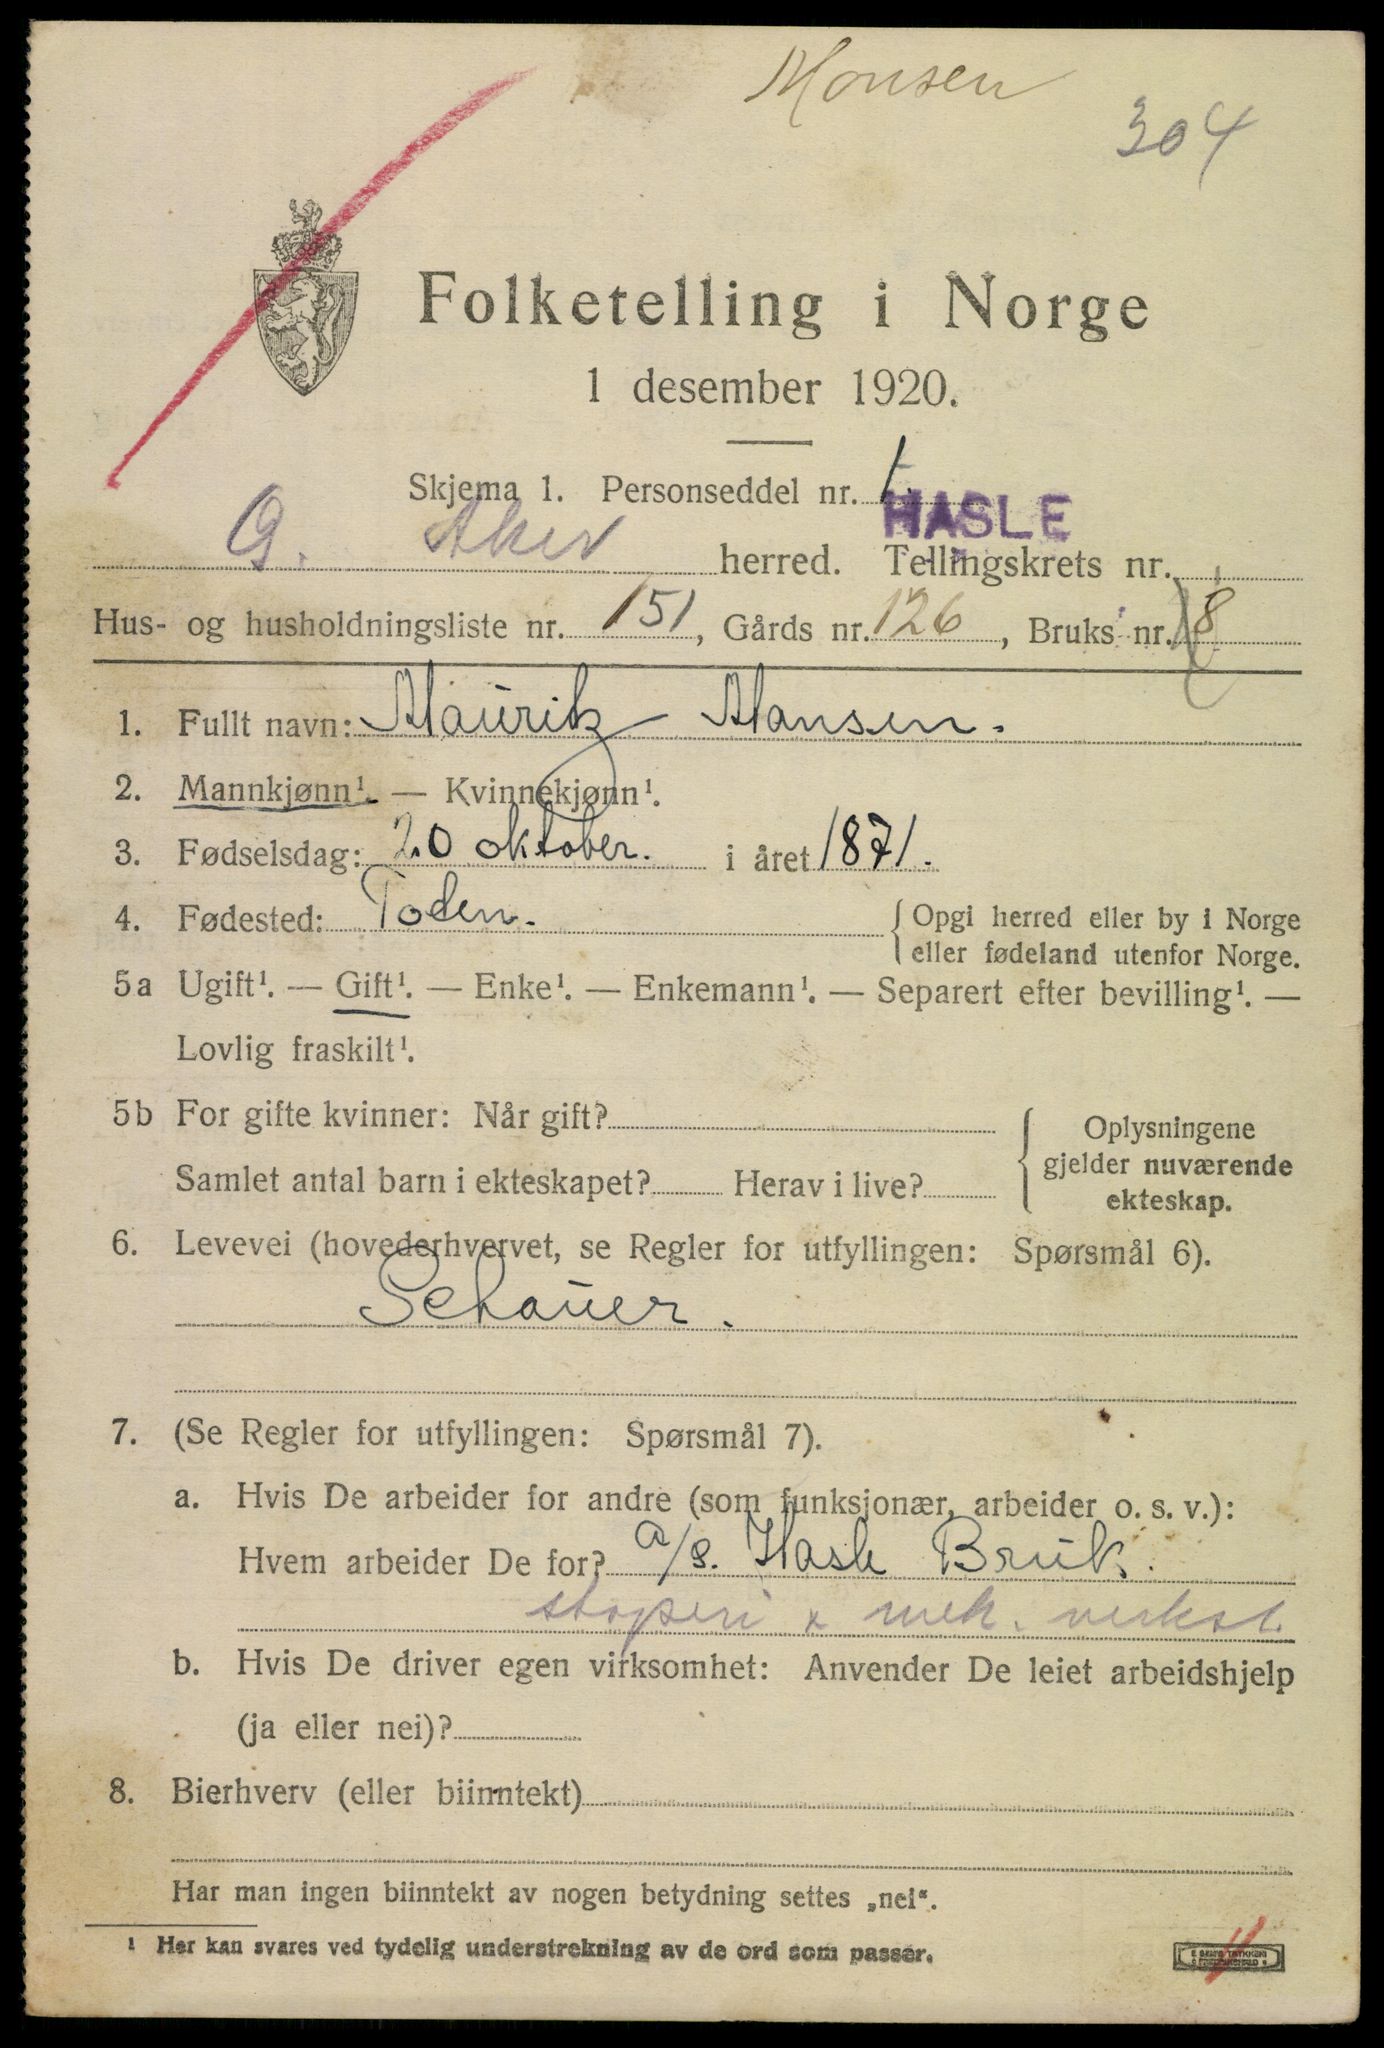 Monsen
304
Folketelling i Norge
1 desember 1920.
Skjema 1. Personseddel nr. 1.
HASLE
G. Aker herred. Tellingskrets nr.
Hus- og husholdningsliste nr. 151, Gårds nr. 126, Bruks nr. 8
1. Fullt navn: Mauritz Mansen.
2. Mannkjønn¹. — Kvinnekjønn¹.
3. Fødselsdag: 20 oktober. i året 1871.
4. Fødested: Toden. Opgi herred eller by i Norge
eller fødeland utenfor Norge.
5a Ugift¹. — Gift¹. — Enke¹. — Enkemann¹. — Separert efter bevilling¹. —
Lovlig fraskilt¹.
5b For gifte kvinner: Når gift? Oplysningene
gjelder nuværende
Samlet antal barn i ekteskapet? Herav i live? ekteskap.
6. Levevei (hovederhvervet, se Regler for utfyllingen: Spørsmål 6).
Schauer.
7. (Se Regler for utfyllingen: Spørsmål 7).
a. Hvis De arbeider for andre (som funksjonær, arbeider o. s. v.):
Hvem arbeider De for? a/s. Hasle Bruk.
støperi & mek. verkst.
b. Hvis De driver egen virksomhet: Anvender De leiet arbeidshjelp
(ja eller nei)?
8. Bierhverv (eller biinntekt)
Har man ingen biinntekt av nogen betydning settes „nei“.
¹ Her kan svares ved tydelig understrekning av de ord som passer.